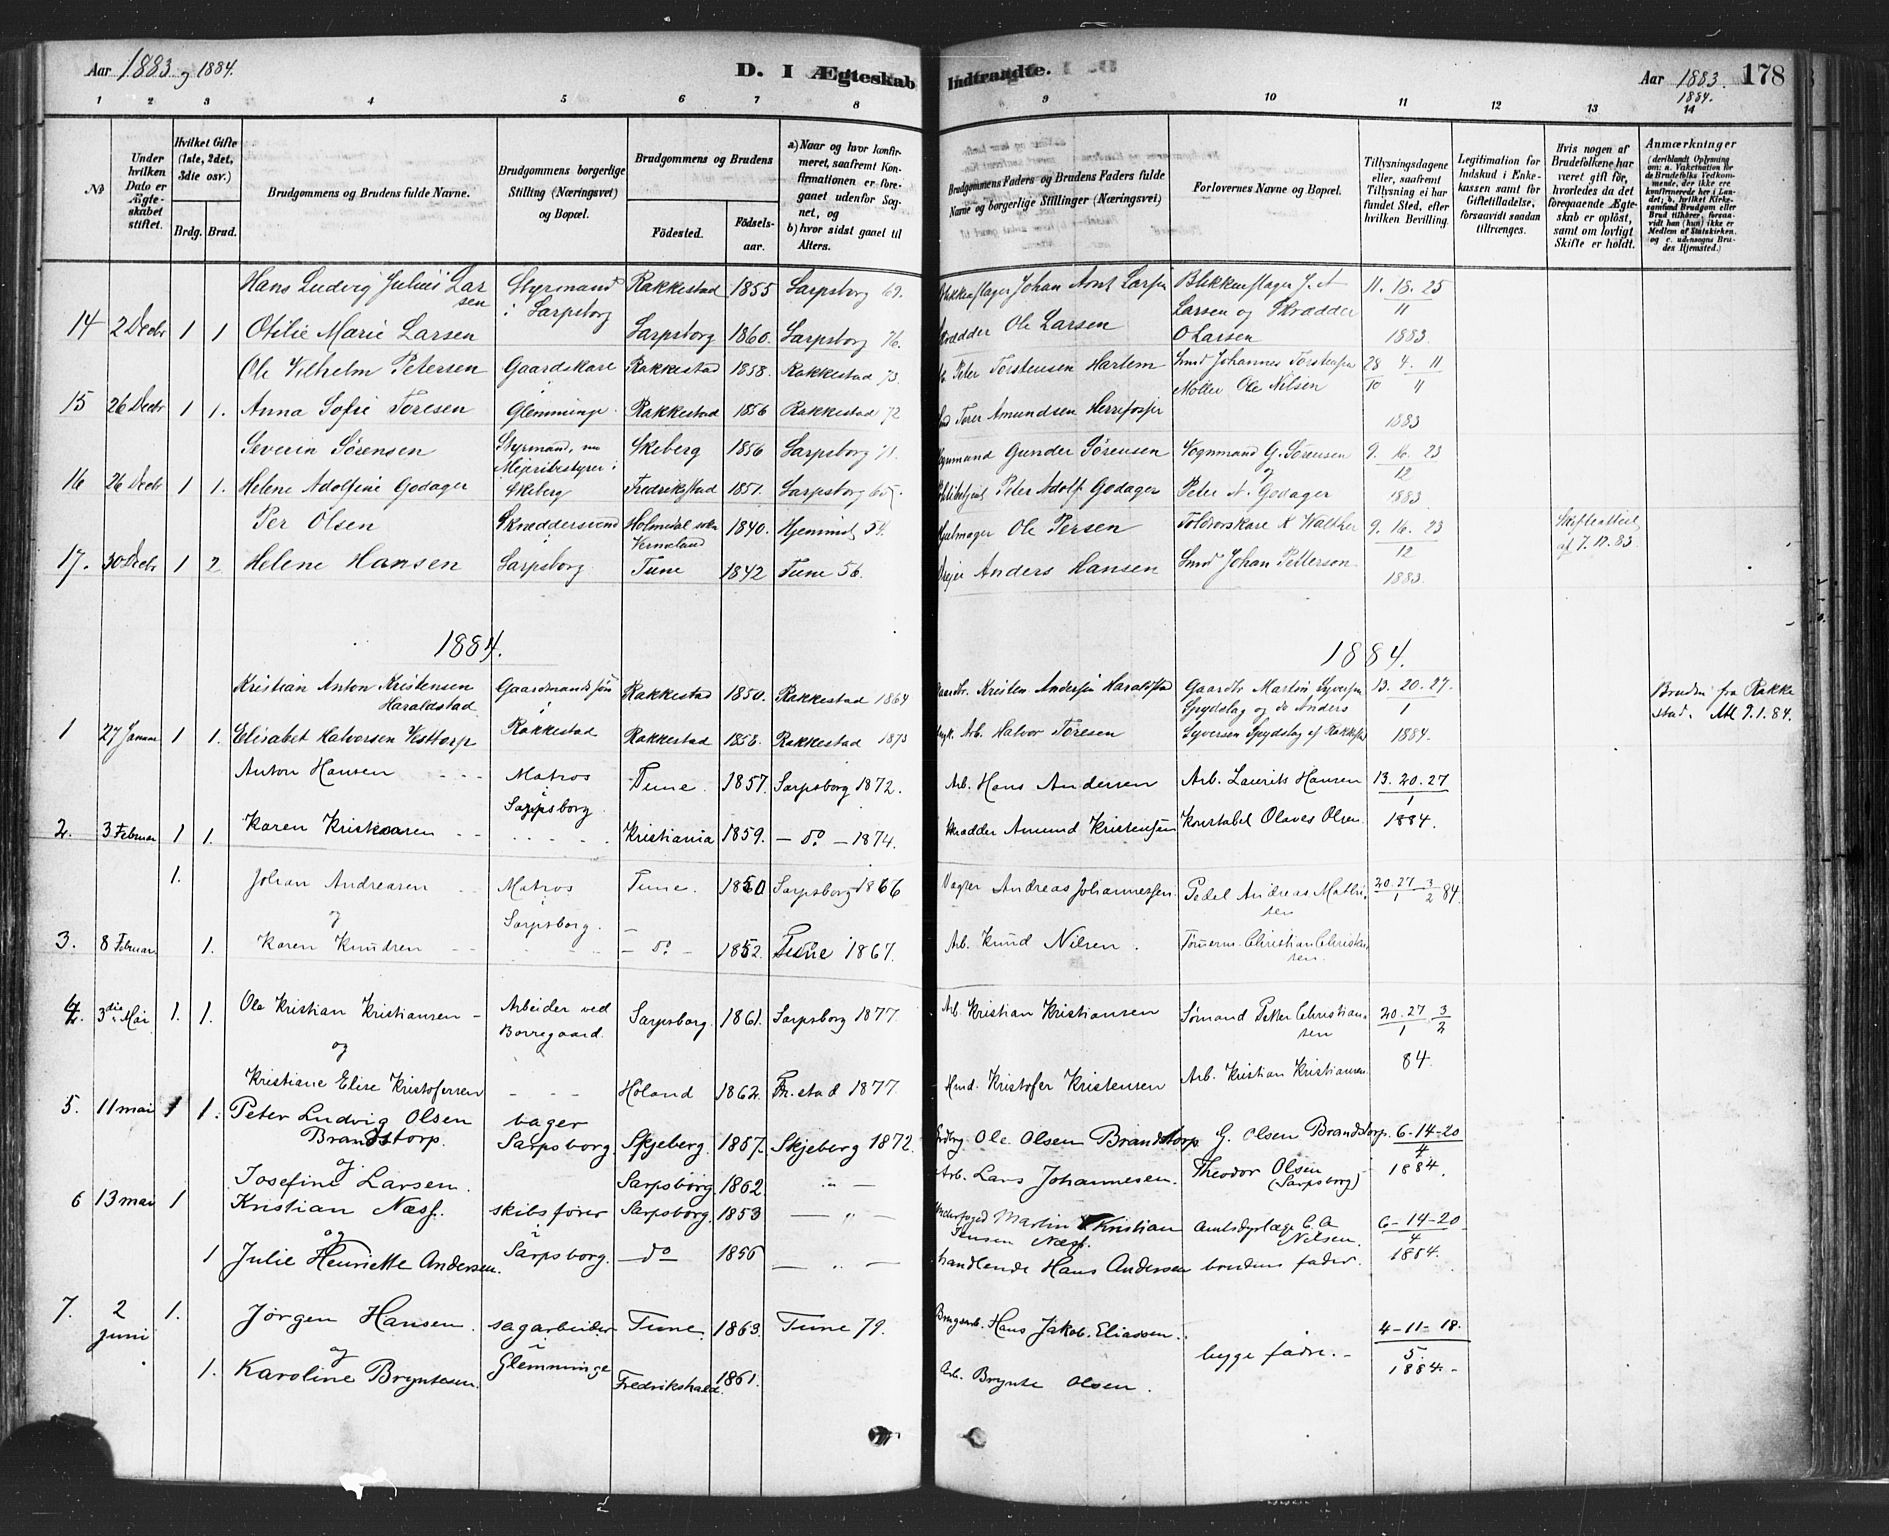 Aar 1883 og 1884.
D. I Ægteskab
Indtraadte.
Aar 1883. 178
1884.
1 2 3 4 5 6 7 8 9 10 11 12 13 14
No
Under hvilken Dato er Ægteskabet stiftet.
Hvilket Gifte (1ste, 2det, 3die osv.)
Brdg. Brud.
Brudgommens og Brudens fulde Navne.
Brudgommens borgerlige Stilling (Næringsvei) og Bopæl.
Brudgommens og Brudens
Födested. Födselsaar.
a) Naar og hvor konfirmeret, saafremt Konfirmationen er foregaaet udenfor Sognet, og
b) hvor sidst gaaet til Alters.
Brudgommens Faders og Brudens Faders fulde Navne og borgerlige Stillinger (Næringsvei)
Forlovernes Navne og Bopæl.
Tillysningsdagene eller, saafremt Tillysning ei har fundet Sted, efter hvilken Bevilling.
Legitimation for Indskud i Enkekassen samt for Giftetilladelse, forsaavidt saadan tiltrænges.
Hvis nogen af Brudefolkene har været gift för, hvorledes da det foregaaende Ægteskab er oplöst, samt om lovligt Skifte er holdt.
Anmærkninger
Hans Ludvig Julius Larsen Styrmand i Sarpsborg Rakkestad 1855 Sarpsborg 69. Blikkenslager Johan Arnt Larsen Blikkenslager J. A Larsen og Skrædder O Larsen 11. 18. 25
11
1883.
14 2 Decbr 1 1 Otilie Marie Larsen Sarpsborg 1860. Sarpsborg 76. Skrædder Ole Larsen
Ole Vilhelm Petersen Gaardskarl i Glemminge Rakkestad 1858. Rakkestad 73. Peter Torstensen Harlem Smed Johannes Torstensen Møller Ole Nilsen 28 4. 11
10 11
1883
15 26 Decbr 1 1. Anna Sofie Toresen Rakkestad 1856 Rakkestad 72 Torer Amundsen Herrefosser
Severin Sørensen Styrmand, nu Meieribestyrer i Skeberg Skeberg 1856 Sarpsborg 71. Vognmand Gunder Sørensen Vognmand G. Sørensen og Peter A. Godager 9. 16. 23
12
1883
16 26 Decbr 1 1. Helene Adolfine Godager Fredrikstad 1851. Sarpsborg 65. Peter Adolf Godager
Per Olsen Skræddersvend i Sarpsborg Holmedal sdn Vermeland 1840. Hjemmet 54. Hjulmager Ole Persen Toldroskarl K Walther 9. 16. 23
12
1883.
Skifteattest af 7.12.83.
17. 30 Decbr 1 2 Helene Hansen Tune 1842 Tune 56. Dreier Anders Hansen Smed Johan Petterson
1884. 1884.
Kristian Anton Kristensen Haraldstad Gaardmandssøn i Rakkestad Rakkestad 1850. Rakkestad 1864 Gaardbr. Kristen Andersen Haraldstad Gaardbr Martin Syversen Spydslag og do Anders Syversen Spydslag af Rakkestad 13. 20. 27.
1
1884.
Bruden fra Rakkestad. Att 9.1.84.
1 27 Januar 1 1. Elisabet Halvorsen Visttorp Rakkestad 1858. Rakkestad 1873 Arb. Halvor Toresen
Anton Hansen Matros i Sarpsborg Tune. 1857. Sarpsborg 1872. Arb. Hans Andersen Arb. Laurits Hansen 13. 20. 27
1
1884.
2. 3 Februar 1 1. Karen Kristensen Kristiania 1859. – do – 1874. Skrædder Amund Kristensen Konstabel Olaves Olsen
1. Johan Andreasen Matros i Sarpsborg. Tune. 1850 Sarpsborg 1866 Vægter Andreas Johannessen. Pedel Andreas Mathisen 20. 27 3
1 2 84.
og
3. 8 Februar 1. Karen Knudsen – do – 1852. Tune 1867. Arb. Knud Nilsen. Tømerm. Christian Christensen.
4. 3die Mai 1. 1. Ole Kristian Kristiansen Arbeider ved Borregaard. Sarpsborg. 1861. Sarpsborg 1877. Arb. Kristian Kristiansen Sømand Peter Christiansen 20. 27. 3
1 2
84.
og
Kristiane Elise Kristofersen Høland 1862. Fr.stad 1877. Hmd. Kristofer Kristensen Arb. Kristian Kristiansen
5. 11 mai 1 1. Peter Ludvig Olsen Brandstorp. bager Sarpsborg. Skjeberg. 1857. Skjeberg 1872. Ole Olsen Brandstorp. G. Olsen Brandstorp. 6-14-20
4
1884.
og
Josefine Larsen. Sarpsborg. 1862. – " – Arb. Lars Johannesen. Theodor Olsen (Sarpsborg)
6 13 mai 1 Kristian Næss. skibsfører i Sarpsborg. Sarpsborg. 1853 – " – Underfoged Martin Kristian Jensen Næss. amtsdyrlæge C. A Nilsen. 6-14-20
4
1884.
og
1 Julie Henriette Andersen. do 1856 – " – handlende Hans Andersen brudens fader.
7. 2 juni 1. Jørgen Hansen. sagarbeider i Glemminge Tune. 1863. Tune 79. Brugsarb. Hans Jakob Eliassen. begge fædre. – 4-11-18.
5.
1884.-
og
1. Karoline Bryntesen. Fredrikshald. 1861. Arb. Brynte Olsen.